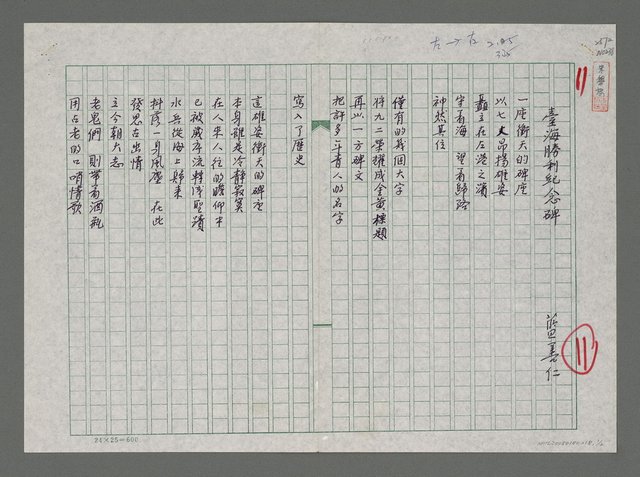 臺海勝利紀念碑
藍善仁
一座衝天的碑座
以七丈昂揚雄姿
矗立在左港之濱
守着海 望着歸路
神然其位
僅有的幾個大字
將九二榮耀成金黃標題
再以一方碑文
把許多年青人的名字
寫入了歷史
這雄姿衝天的碑座
本身雖是冷靜寂寞
在人來人往的瞻仰中
已被歲月流轉成聖蹟
水兵從海上歸來
抖落一身風塵 在此
發思古幽情
立今朝大志
老鬼們 則帶着酒瓶
用古老的口哨情歌
24×25=600
11
11